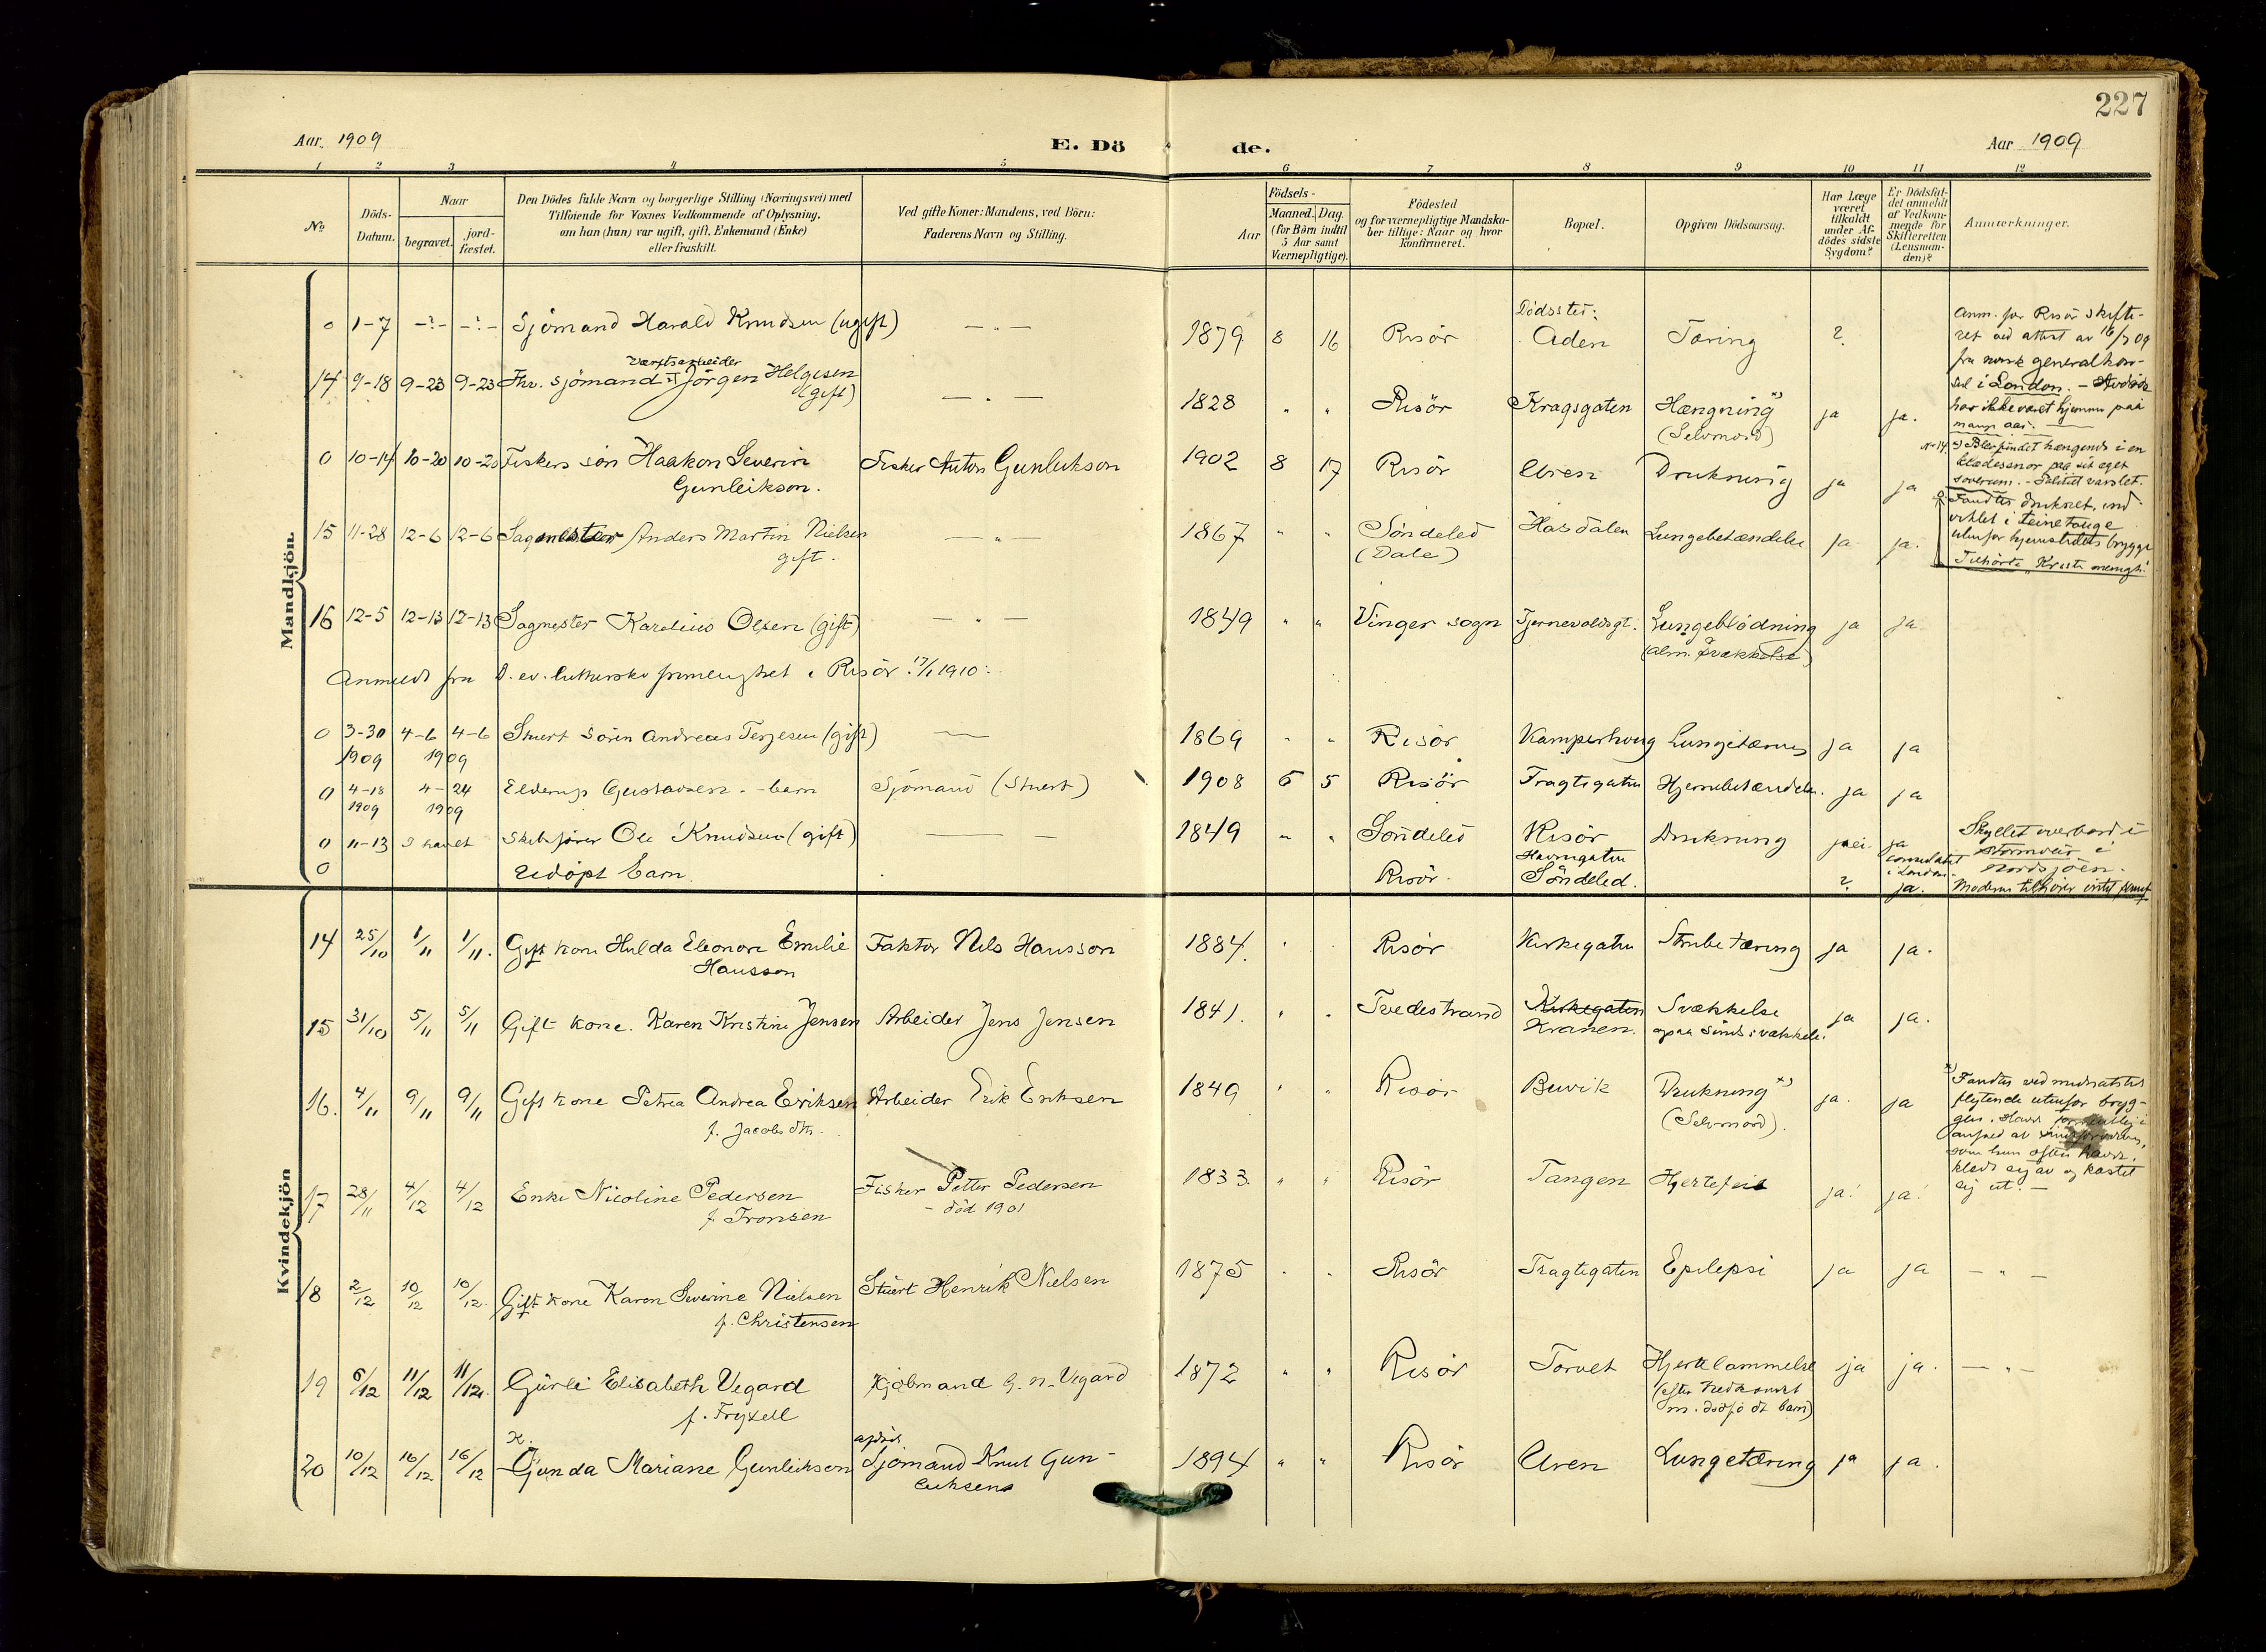 227
Aar 1909
E. Dö
de.
Aar 1909
1 2 3 4 5 6 7 8 9 10 11 12
No
Döds-Datum.
Naar
begravet.
jord-fæstet.
Den Dödes fulde Navn og borgerlige Stilling (Næringsvei) med
Tilføiende for Voxnes Vedkommende af Oplysning,
om han (hun) var ugift, gift, Enkemand (Enke)
eller fraskilt.
Ved gifte Koner: Mandens, ved Börn:
Faderens Navn og Stilling.
Födsels-
Aar
Maaned. Dag.
(for Börn indtil
5 Aar samt
Værnepligtige).
Födested
og for værnepligtige Mandska-
ber tillige: Naar og hvor
konfirmeret.
Bopæl.
Opgiven Dödsaarsag.
Har Læge
været
tilkaldt
under Af-
dödes sidste
Sygdom?
Er Dödsfal-
det anmeldt
af Vedkom-
mende for
Skifteretten
(Lensman-
den)?
Anmærkninger.
Mandkjön.
0 1-7 -?- -?- Sjömand Harald Knudsen (ugift) — " — 1879 8 16 Risör Dödssted: Aden Tæring ?
Anm. for Risör skifte-
ret ved attest av 16/7 09
fra norsk generalkon-
sul i London. - Avdöde
har ikke været hjemme paa
mange aar. —
14 9-18 9-23 9-23 Fhv. sjömand Værftsarbeider Jörgen Helgesen
(gift) — " — 1828 " " Risör Kragsgaten Hængning x)
(Selvmord) ja ja.
No 14. x) Blev fundet hængende i en
klædesnor paa sit eget
soverum. -
0 10-14 10-20 10-20 Fiskers sön Haakon Severin
Gunleikson. Fisker Anton Gunleikson 1902 8 17 Risör Uren Drukning ja ja
Fandtes druknet, ind-
viklet i teinetauge
utenfor hjemstedets brygge
Tilhörte "Kristi menigh."
15 11-28 12-6 12-6 Sagmester Anders Martin Nielsen
gift. — " — 1867 " " Söndeled
(Dale) Hasdalen Lungebetændelse ja ja.
16 12-5 12-13 12-13 Sagmester Karelius Olsen (gift) — " — 1849 " " Vinger sogn Tjernevoldsgt. Lungeblödning
(alm. svækkelse) ja ja
Anmeldt fra D. ev. lutherske frimenighet i Risör 17/1 1910:
0 3-30 1909 4-6 4-6 1909 Stuert Sören Andreas Terjesen (gift) — 1869 " " Risör Kamperhoug Lungetæring ja ja
0 4-18 1909 4-24 1909 Gustavsen - barn Sjömand (Stuert) 1908 6 5 Risör Tragtegaten Hjernebetændelse. ja ja
0 11-13 I havet Skibsförer Ole Knudsen (gift) — — 1849 " " Söndeled Risör
Havnegaten Drukning nei ja
consulatet
i London.
Skyllet overbord i
stormveir i
Nordsjöen.
0 Udöpt barn. Risör Söndeled. ? ja.
Kvindekjön
14 25/10 1/11 1/11. Gift kone Hulda Eleonore Emilie
Hansson Faktor Nils Hansson 1884. " " Risör Kirkegaten Strubetæring ja ja.
15 31/10 5/11 5/11 Gift kone. Karen Kristine Jensen Arbeider Jens Jensen 1841. " " Tvedestrand Kirkegaten
Kranen. Svækkelse
ogsaa sindssvækkelse. ja ja.
16. 4/11 9/11 9/11 Gift kone Petrea Andrea Eriksen
f. Jacobsdtr. Arbeider Erik Eriksen 1849 " " Risör Buvik Drukning x)
(Selvmord). ja. ja
x) Fandtes ved midnatstid
flytende utenfor bryg-
gen. Havde
som hun ofte havde,
klædt sig av og kastet
sig ut. —
17 28/11 4/12 4/12 Enke Nicoline Pedersen
f. Tronsen Fisker Petter Pedersen
- död 1901 1833. " " Risör Tangen Hjertefeil ja! ja!
18 2/12 10/12 10/12. Gift kone Karen Severine Nielsen
f. Christensen Stuert Henrik Nielsen 1875 " " Risör Tragtegaten Epilepsi ja ja — " —
19 6/12 11/12 11/12. Gürli Elisabeth Vegard
f. Fryxell Kjøbmand G. N. Vegard 1872 " " Risör Torvet Hjertelammelse
(efter nedkomst
m. dödfödt barn) ja ja. — " —
20 10/12 16/12 16/12 Gunda Mariane Gunleiksen afdöd.
Sjömand Knut Gun-
leiksen 1894 " " Risör Uren Lungetæring ja ja.